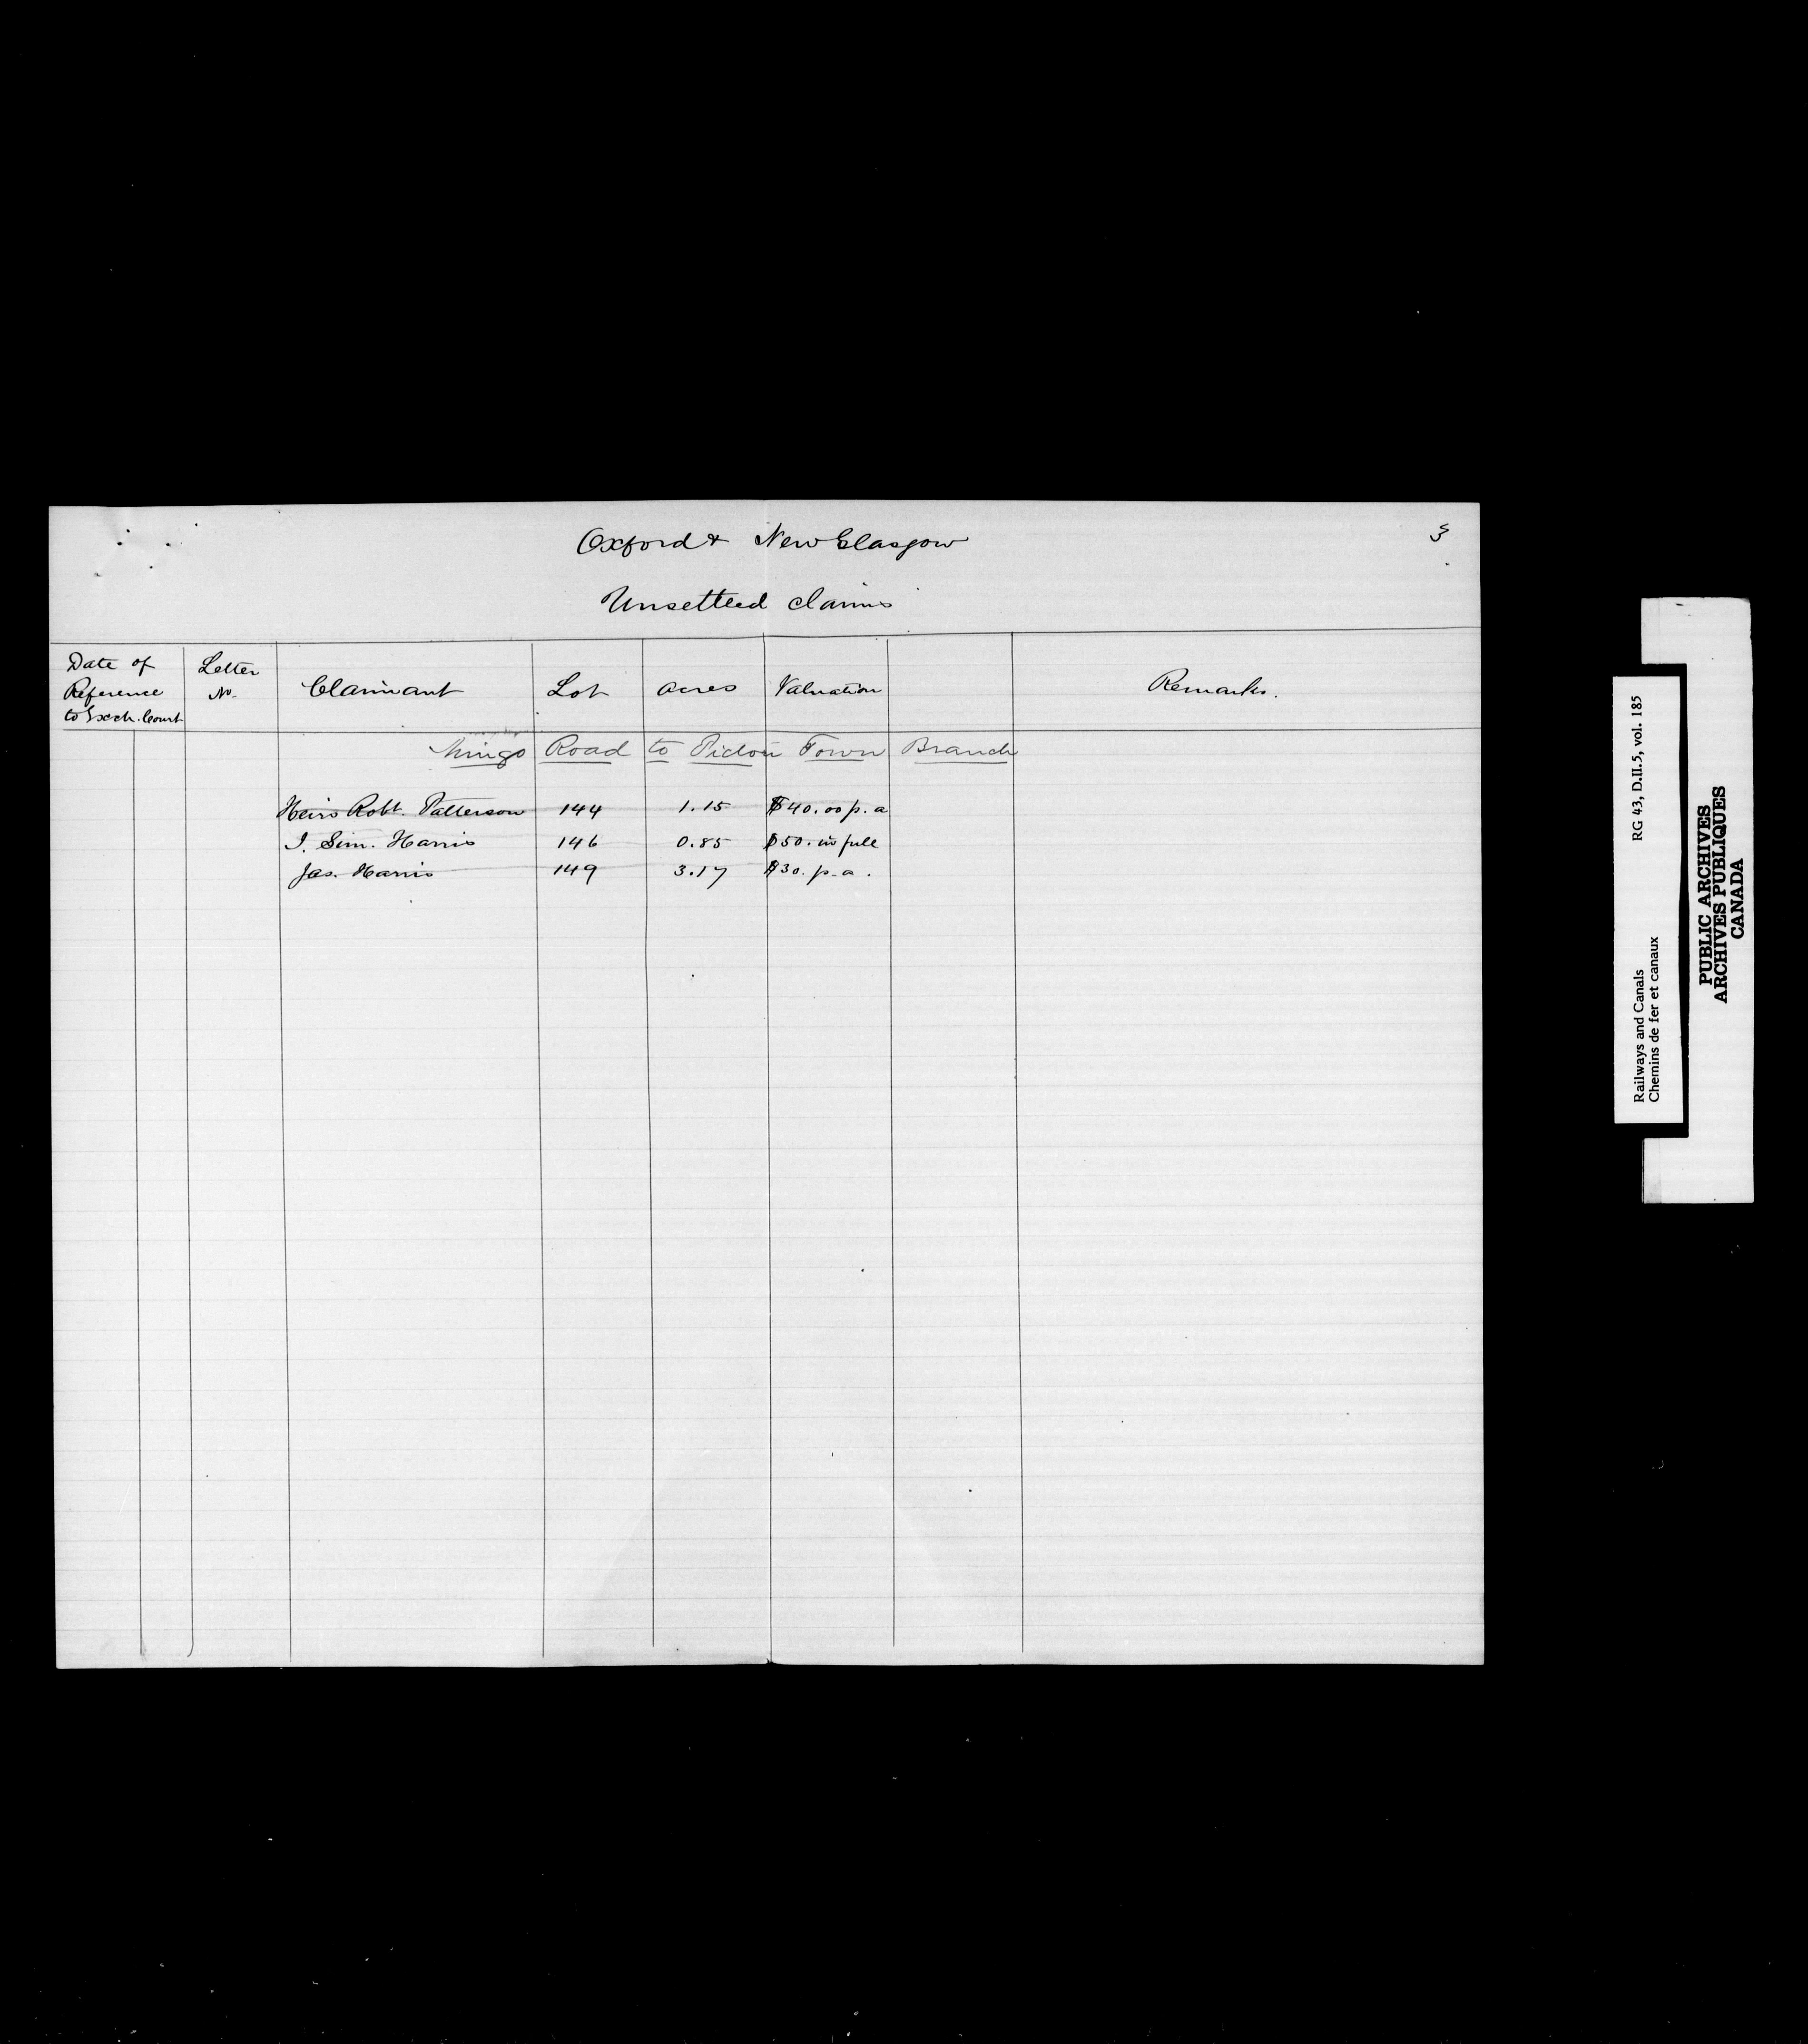 Oxford & New Glasgow
3
Unsettled claims
Date of Reference to Exch. Court
Letter No.
Claimant
Lot
acres
Valuation
Remarks.
Mingo Road to Pictou Town Branch
Heirs Robt. Patterson 144 1.15 $40.00 p. a
I. Sim. Harris 146 0.85 $50. in full
Jas. Harris 149 3.17 $30. p. a.
Railways and Canals
Chemins de fer et canaux
RG 43, D.II.5, vol. 185
PUBLIC ARCHIVES
ARCHIVES PUBLIQUES
CANADA